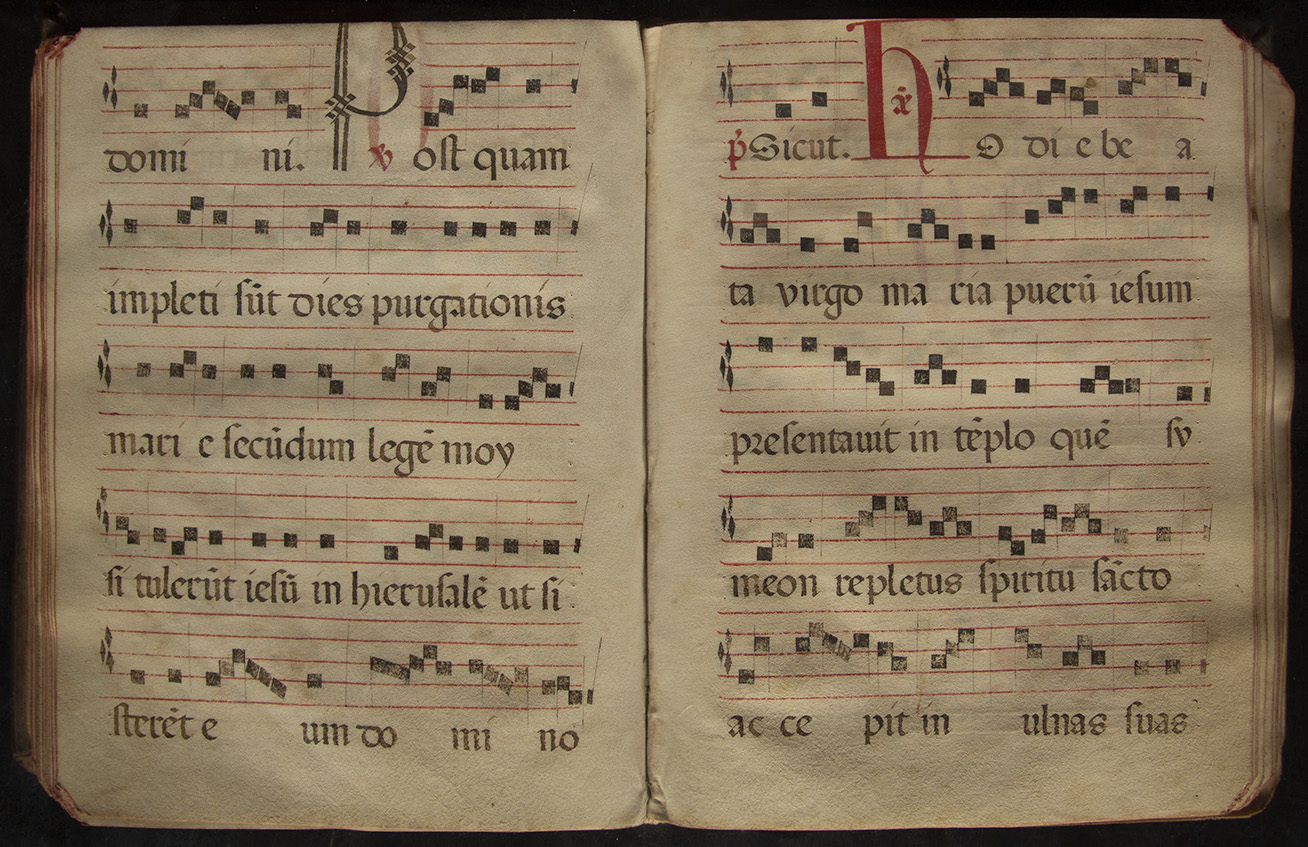 domi ni. P ℣ ost quam
impleti sũt dies purgationis
mari e secũdum legẽ moy
si tulerũt iesũ in hierusalẽ ut si
sterẽt e um do mi no
p̃ Sicut. H ℟ O di e be a
ta virgo ma ria puerũ iesum
presentavit in tẽplo quẽ sy
meon repletus spiritu sãcto
ac ce pit in ulnas suas